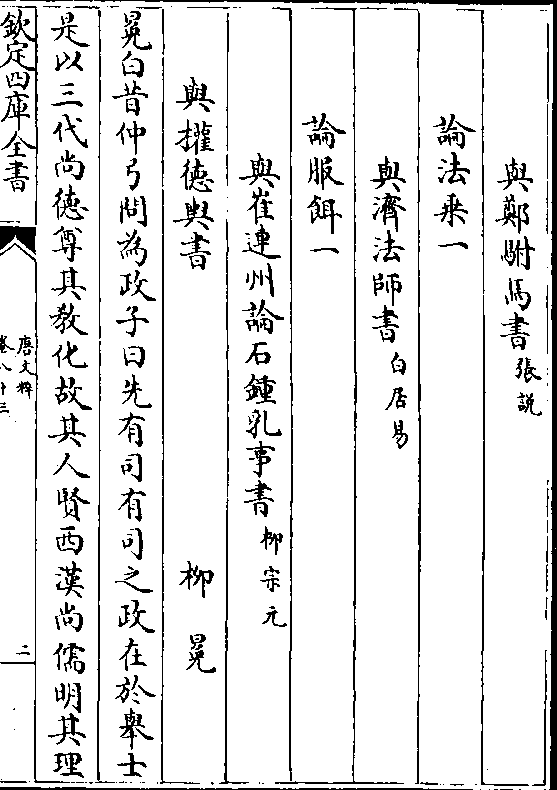 與鄭駙馬書 張説
論法乘一
與濟法師書 白居易
論服餌一
與崔連州論石鍾乳事書 柳宗元
與權德輿書 柳冕
冕白昔仲弓問為政子曰先有司有司之政在於舉士
是以三代尚德尊其教化故其人賢西漢尚儒明其理
欽定四庫全書
唐文粹
卷八十三
二